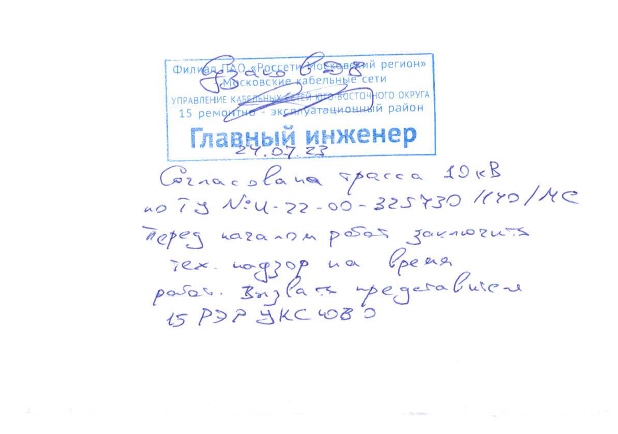 Филиал ПАО «Россети Московский регион»
Московские кабельные сети
УПРАВЛЕНИЕ КАБЕЛЬНЫХ СЕТЕЙ ЮГО-ВОСТОЧНОГО ОКРУГА
15 ремонтно - эксплуатационный район
Главный инженер
24.07.23
Согласована трасса 10 кВ
по ТУ № И-22-00-325730/140/МС
Перед началом работ заключить
тех. надзор на время
работ. Вызвать представителя
15 РЭР УКС ЮВО